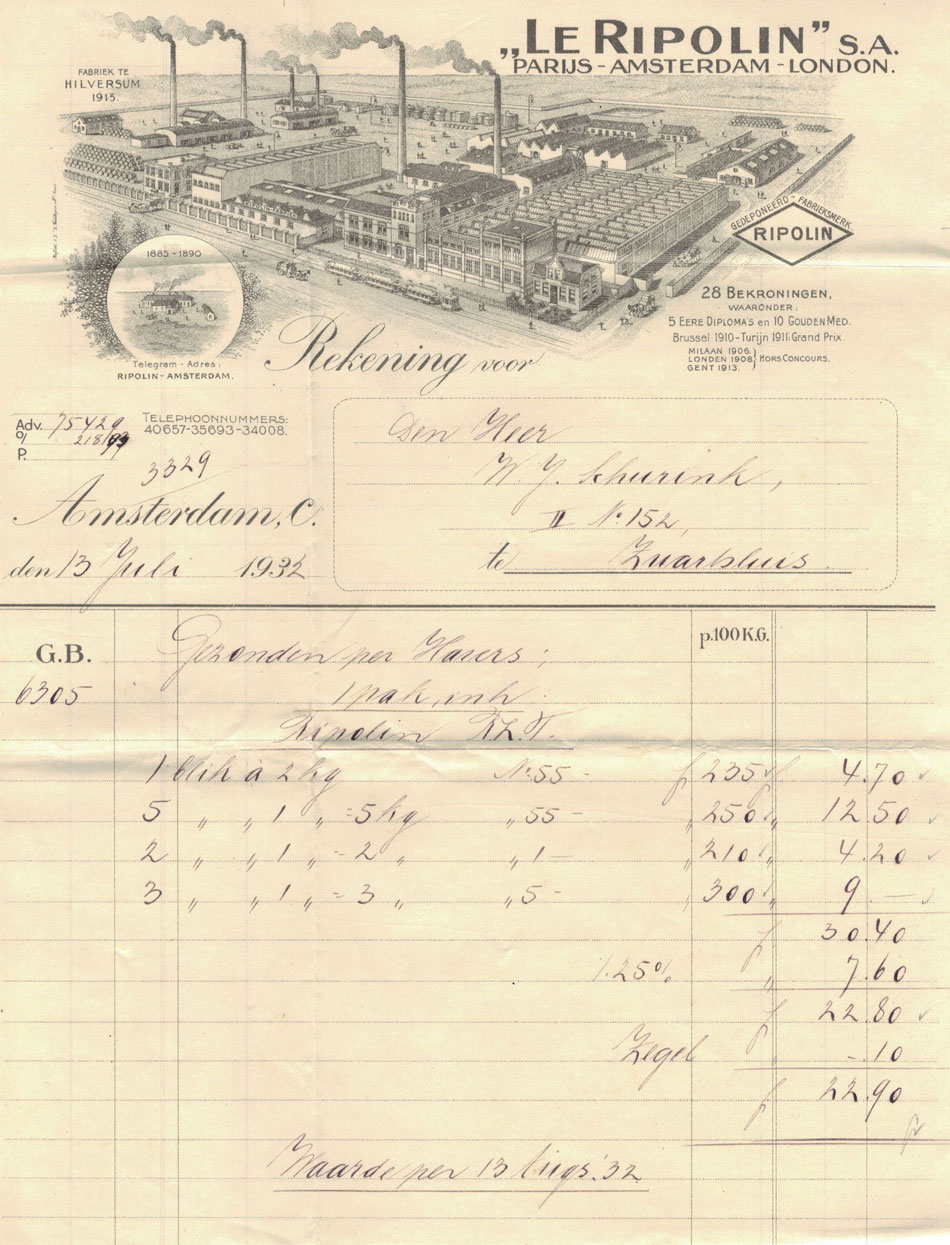 „LE RIPOLIN” S.A.
PARIJS - AMSTERDAM - LONDON.
FABRIEK TE
HILVERSUM
1915.
GEDEPONEERD - FABRIEKSMERK
RIPOLIN
1885 - 1890
28 BEKRONINGEN,
WAARONDER:
5 EERE DIPLOMA'S en 10 GOUDEN MED.
Brussel 1910 - Turijn 1911: Grand Prix.
MILAAN 1906.
LONDEN 1908. } HORS CONCOURS.
GENT 1913.
Telegram - Adres:
RIPOLIN - AMSTERDAM.
Rekening voor
Adv. 75429
o/ 218/
P.
TELEPHOONNUMMERS:
40657-35693-34008.
3329
Amsterdam, C.
den 13 Juli 1932
Den Heer
W. J. Schurink,
II No 152,
te Zwartsluis.
G.B. p.100 K.G.
6305
Gezonden per
1 pak, inh.
Ripolin
1 blik a 2 kg No 55 - f 235 f 4.70
5 „ „ 1 „ = 5 kg „ 55 - „ 250 „ 12.50
2 „ „ 1 „ = 2 „ „ 1 — „ 210 „ 4.20
3 „ „ 1 „ = 3 „ „ 5 - „ 300 „ 9.—
f 30.40
25% „ 7.60
f 22.80
Zegel „ -.10
f 22.90
Waarde per 13 Augs. '32